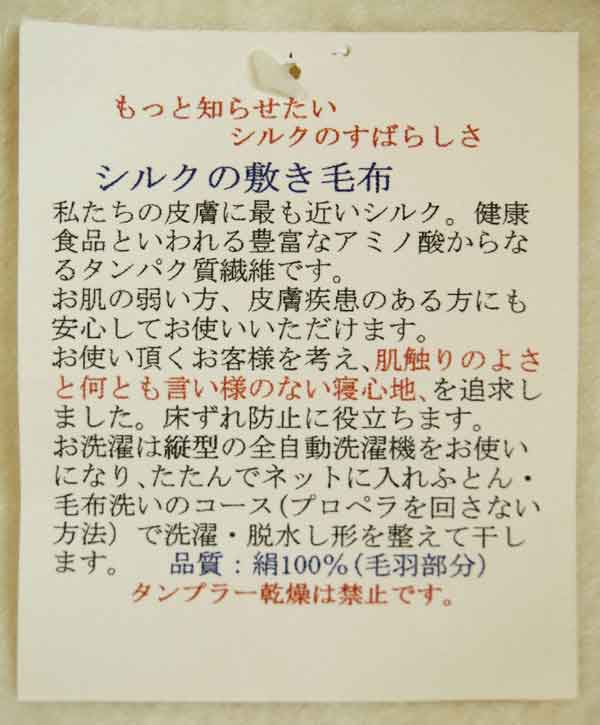 もっと知らせたい
シルクのすばらしさ
シルクの敷き毛布
私たちの皮膚に最も近いシルク。健康
食品といわれる豊富なアミノ酸からな
るタンパク質繊維です。
お肌の弱い方、皮膚疾患のある方にも
安心してお使いいただけます。
お使い頂くお客様を考え、肌触りのよさ
と何とも言い様のない寝心地、を追求し
ました。床ずれ防止に役立ちます。
お洗濯は縦型の全自動洗濯機をお使い
になり、たたんでネットに入れふとん・
毛布洗いのコース(プロペラを回さない
方法)で洗濯・脱水し形を整えて干し
ます。 品質：絹100%(毛羽部分)
タンプラー乾燥は禁止です。